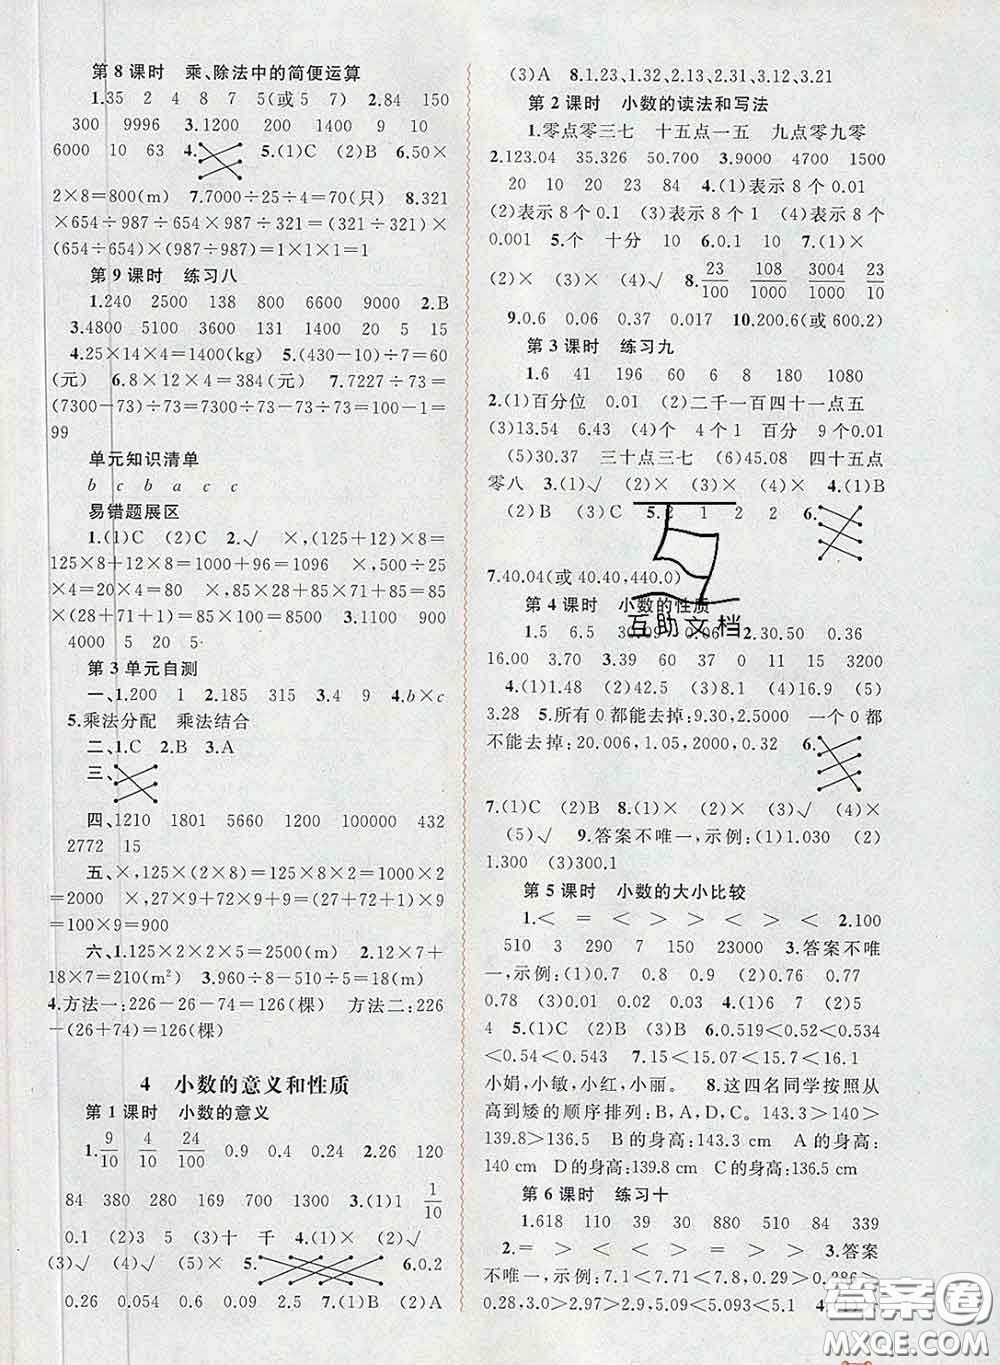 第8课时　乘、除法中的简便运算
1.35　2　4　8　7　5(或5　7)　2.84　150
300　9996　3.1200　200　1400　9　10
6000　10　63　4.　5.(1)C　(2)B　6.50×
2×8=800(m)　7.7000÷25÷4=70(只)　8.321
×654÷987÷654×987÷321=(321÷321)×
(654÷654)×(987÷987)=1×1×1=1
第9课时　练习八
1.240　2500　138　800　6600　9000　2.B
3.4800　5100　3600　131　1400　20　5　15
4.25×14×4=1400(kg)　5.(430-10)÷7=60
(元)　6.8×12×4=384(元)　7.7227÷73=
(7300-73)÷73=7300÷73-73÷73=100-1=
99
单元知识清单
b　c　b　a　c　c
易错题展区
1.(1)C　(2)C　2.√　×,(125+12)×8=
125×8+12×8=1000+96=1096　×,125÷25
=5　×,85×28+71×85+85=
85×(28+71+1)=85×100=8500　3.100　900
4000　5　20　5
第3单元自测
一、1.200　1　2.185　315　3.4　9　4.b×c
5.乘法分配　乘法结合
二、1.C　2.B　3.A
三、
四、1210　1801　5660　1200　100000　432
2772　15
五、×,125×(2×8)=125×8×2=1000×2
=2000　×,27×9+72×9+9=(27+72+1)×
9=100×9=900
六、1.125×2×2×5=2500(m)　2.12×7+
18×7=210(m²)　3.960÷8-510÷5=18(m)
4.方法一:226-26-74=126(棵)　方法二:226
-(26+74)=126(棵)
4　小数的意义和性质
第1课时　小数的意义
1.9/10　4/10　24/100　0.9　0.4　0.24　2.26　120
84　380　280　169　700　1300　3.(1)1　1/10
0.1　(2)3　5　(3)十　千　4.(1)×　(2)√
(3)√　(4)√　(5)×　5.　6.0.2
0.26　0.054　0.6　0.09　2.5　7.(1)B　(2)A
(3)A　8.1.23、1.32、2.13、2.31、3.12、3.21
第2课时　小数的读法和写法
1.零点零三七　十五点一五　九点零九零
2.123.04　35.326　50.700　3.9000　4700　1500
20　10　20　23　84　4.(1)表示8个0.01
(2)表示8个0.1　(3)表示8个1　(4)表示8个
0.001　5.个　十分　10　6.0.1　10　7.(1)×
(2)×　(3)×　(4)√　8.23/100　108/1000　3004/1000　23/10
9.0.6　0.06　0.37　0.017　10.200.6(或600.2)
第3课时　练习九
1.6　41　196　60　6　8　180　1080
2.(1)百分位　0.01　(2)二千一百四十一点五
(3)13.54　6.43　(4)个　4个1　百分　9个0.01
(5)30.37　三十点三七　(6)45.08　四十五点
零八　3.(1)√　(2)×　(3)×　(4)×　4.(1)B
(2)B　(3)C　5.2　1　2　2　6.
7.40.04(或40.40,440.0)
第4课时　小数的性质
1.5　6.5　30.09　0.06　2.30.50　0.36
16.00　3.70　3.39　60　37　0　11　15　3200
4.(1)1.48　(2)42.5　(3)8.1　(4)16.9　(5)
3.28　5.所有0都能去掉:9.30,2.5000　一个0都
不能去掉:20.006,1.05,2000,0.32　6.
7.(1)C　(2)B　8.(1)×　(2)×　(3)√　(4)×
(5)√　9.答案不唯一,示例:(1)1.030　(2)
1.300　(3)300.1
第5课时　小数的大小比较
1.<　=　<　>　>　<　>　<　2.100
510　3　290　7　150　23000　3.答案不唯
一,示例:(1)0.7　0.8　0.9　(2)0.76　0.77
0.78　(3)0.01　0.02　0.03　4.(1)6　7　(2)5
4　5.(1)C　(2)B　(3)B　6.0.519<0.52<0.534
<0.54<0.542　7.15<15.1<15.7<15.9<16.1
小娟,小敏,小红,小丽。　8.这四名同学按照从
高到矮的顺序排列:B,A,D,C。143.3>140>
139.8>136.5　B的身高:143.3 cm　A的身高:
140 cm　D的身高:139.8 cm　C的身高:136.5 cm
第6课时　练习十
1.618　110　39　30　880　510　84　339
2.=　>　<　>　<　>　<　>　3.答案
不唯一,示例:7.1<7.71<7.8,0.29>0.286>
0.28,3.0>2.97>2.9,5.09<5.093<5.1
互助文档
答案圈
MXQE.COM